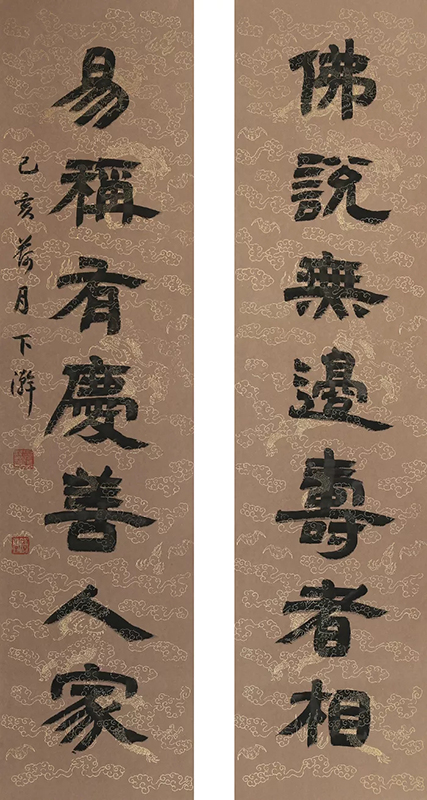 佛說無邊壽者相
易稱有慶善人家
己亥荷月下澣